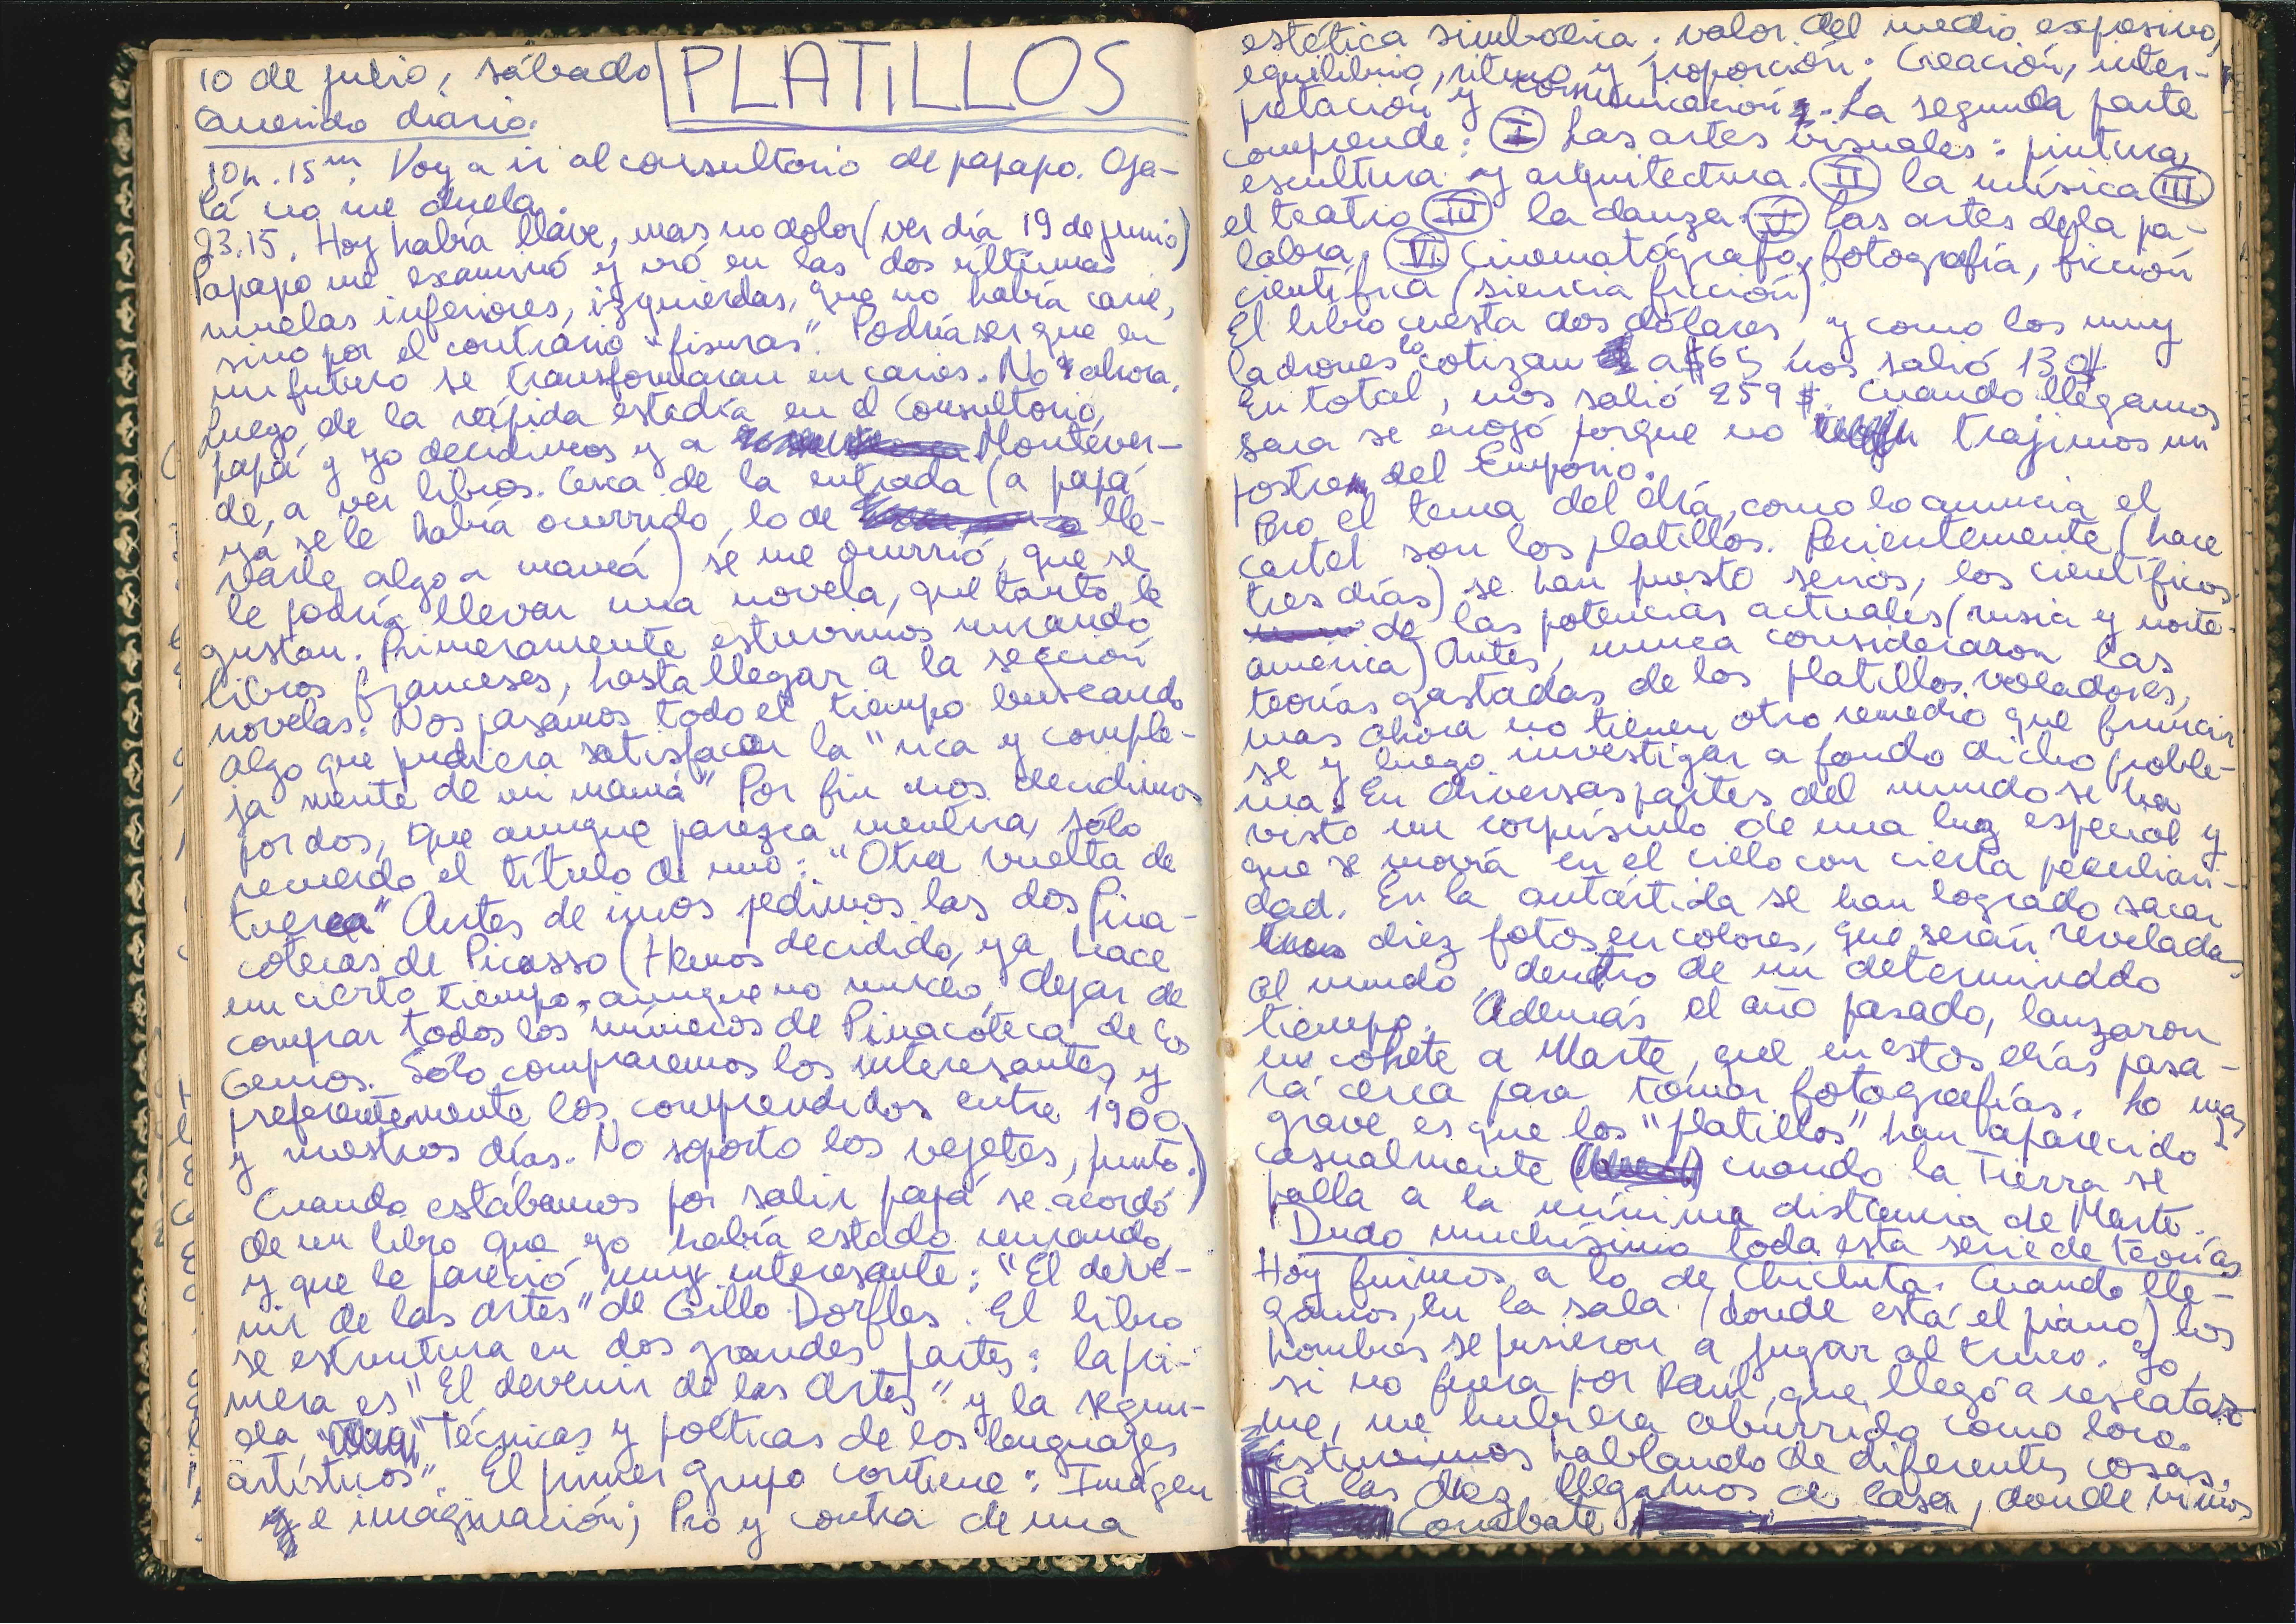 10 de julio, sábado
PLATILLOS
Querido diario.
10h. 15m. Voy a ir al consultorio de papapo. Oja-
lá no me duela.
23.15. Hoy había llave, mas no dolor (ver día 19 de junio)
Papapo me examinó y vió en las dos últimas
muelas inferiores, izquierdas, que no había carie,
sino por el contrario "fisuras". Podría ser que en
un futuro se transformaran en caries. No ahora.
Luego de la rápida estadía en el consultorio,
papá y yo decidimos y a Montever-
de, a ver libros. Cerca de la entrada (a papá
ya se le había ocurrido, lo de lle-
varle algo a mamá) se me ocurrió, que se
le podría llevar una novela, que tanto le
gustan. Primeramente estuvimos mirando
libros franceses, hasta llegar a la sección
novelas. Nos pasamos todo el tiempo buscando
algo que pudiera satisfacer la "rica y comple-
ja mente de mi mamá" Por fin nos decidimos
por dos, que aunque parezca mentira, sólo
recuerdo el título de uno: "Otra vuelta de
tuerca" Antes de irnos pedimos las dos Pina-
cotecas de Picasso (Hemos decidido, ya hace
un cierto tiempo, aunque no mucho, dejar de
comprar todos los números de Pinacoteca de los
Genios. Sólo compraremos los interesantes y
preferentemente los comprendidos entre 1900
y nuestros días. No soporto los vejetes, punto.)
Cuando estábamos por salir papá se acordó
de un libro que yo había estado mirando,
y que le pareció muy interesante: "El deve-
nir de las artes" de Gillo Dorfles. El libro
se estructura en dos grandes partes: la pri-
mera es "El devenir de las Artes" y la segun-
da "Técnicas y poéticas de los lenguajes
artísticos". El primer grupo contiene: Imágen
e imaginación; Pro y contra de una
estética simbólica; valor del medio expesivo,
equilibrio, ritmo y proporción; Creación, inter-
pretación y comunicación. La segunda parte
comprende: I Las artes visuales: pintura,
escultura y arquitectura. II la música III.
el teatro IV la danza. V Las artes de la pa-
labra. VI. Cinematógrafo, fotografía, ficción
científica (siencia ficción)
El libro cuesta dos dólares, y como los muy
ladrones lo cotizan a $65 nos salió 130$
En total, nos salió 259 $. Cuando llegamos
sara se enojó porque no trajimos un
postre del Emporio.
Pero el tema del día, como lo anuncia el
cartel son los platillos. Recientemente (hace
tres días) se han puesto serios, los científicos
de las potencias actuales (rusia y norte-
américa) Antes, nunca consideraron las
teorías gastadas de los platillos voladores,
mas ahora no tienen otro remedio que fruncir
se y luego investigar a fondo dicho proble-
ma. En diversas partes del mundo se ha
visto un corpúsculo de una luz especial y
que se movía en el cielo con cierta peculiari-
dad. En la antártida se han logrado sacar
diez fotos en colores, que serán reveladas
al mundo, dentro de un determinddo
tiempo. Además el año pasado, lanzaron
un cohete a Marte, que en estos días pasa-
rá cerca para tomar fotografías. Lo mas
grave es que los "platillos" han aparecido
casualmente cuando la Tierra se
halla a la mínima distancia de Marte.
Dudo muchísimo toda esta serie de teorías
Hoy fuimos a lo de Chichita. Cuando lle-
gamos, en la sala (donde está el piano) los
hombres se pusieron a jugar al truco. Yo,
si no fuera por Raúl, que llegó a rescatar
me, me hubiera aburrido como loco.
Estuvimos hablando de diferentes cosas.
A las diez llegamos a casa, donde vimos
Combate